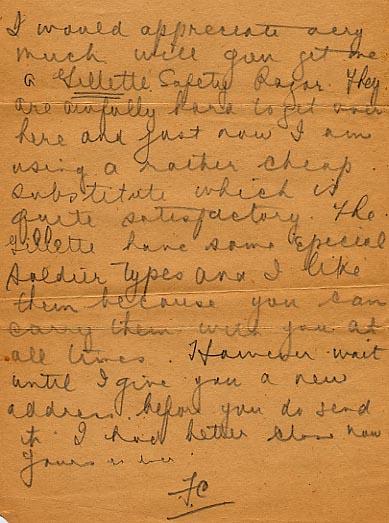 I would appreciate very
much will you get me
a Gillette Safety Razor. They
are awfully hard to get over
here and just now I am
using a rather cheap
substitute which is
quite satisfactory. The
Gillette have some special
soldier types and I like
them because you can
carry them with you at
all times. However wait
until I give you a new
address before you do send
it. I had better close now
Yours as ever
FC